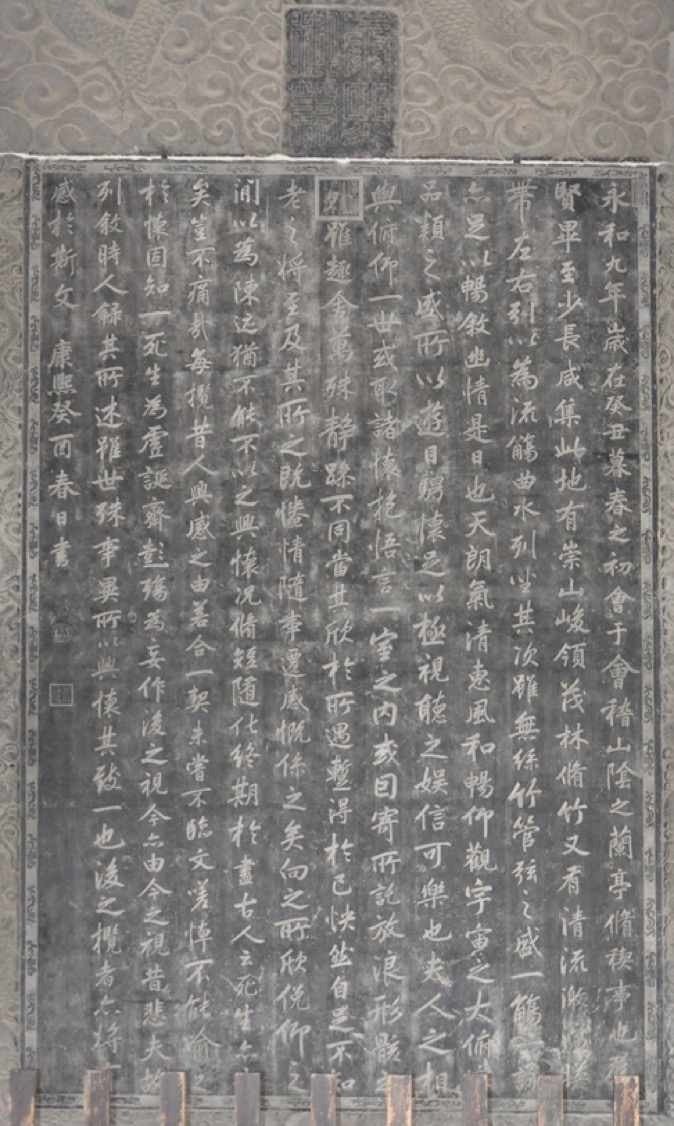 永和九年歲在癸丑暮春之初會于會稽山陰之蘭亭脩禊事也羣
賢畢至少長咸集此地有崇山峻領茂林脩竹又有清流激湍暎
帶左右引以為流觴曲水列坐其次雖無絲竹管弦之盛一觴
亦足以暢敘幽情是日也天朗氣清惠風和暢仰觀宇宙之大俯
品類之盛所以遊目騁懷足以極視聽之娛信可樂也夫人之相
與俯仰一世或取諸懷抱悟言一室之內或因寄所託放浪形骸之
外雖趣舍萬殊靜躁不同當其欣於所遇暫得於己怏然自足不知
老之將至及其所之既惓情隨事遷感慨係之矣向之所欣俛仰之
間以為陳迹猶不能不以之興懷況脩短隨化終期於盡古人云死生亦
矣豈不痛哉每攬昔人興感之由若合一契未嘗不臨文嗟悼不能喻之
於懷固知一死生為虛誕齊彭殤為妄作後之視今亦由今之視昔悲夫故
列敘時人錄其所述雖世殊事異所以興懷其致一也後之攬者亦將
感於斯文 康熙癸酉春日書